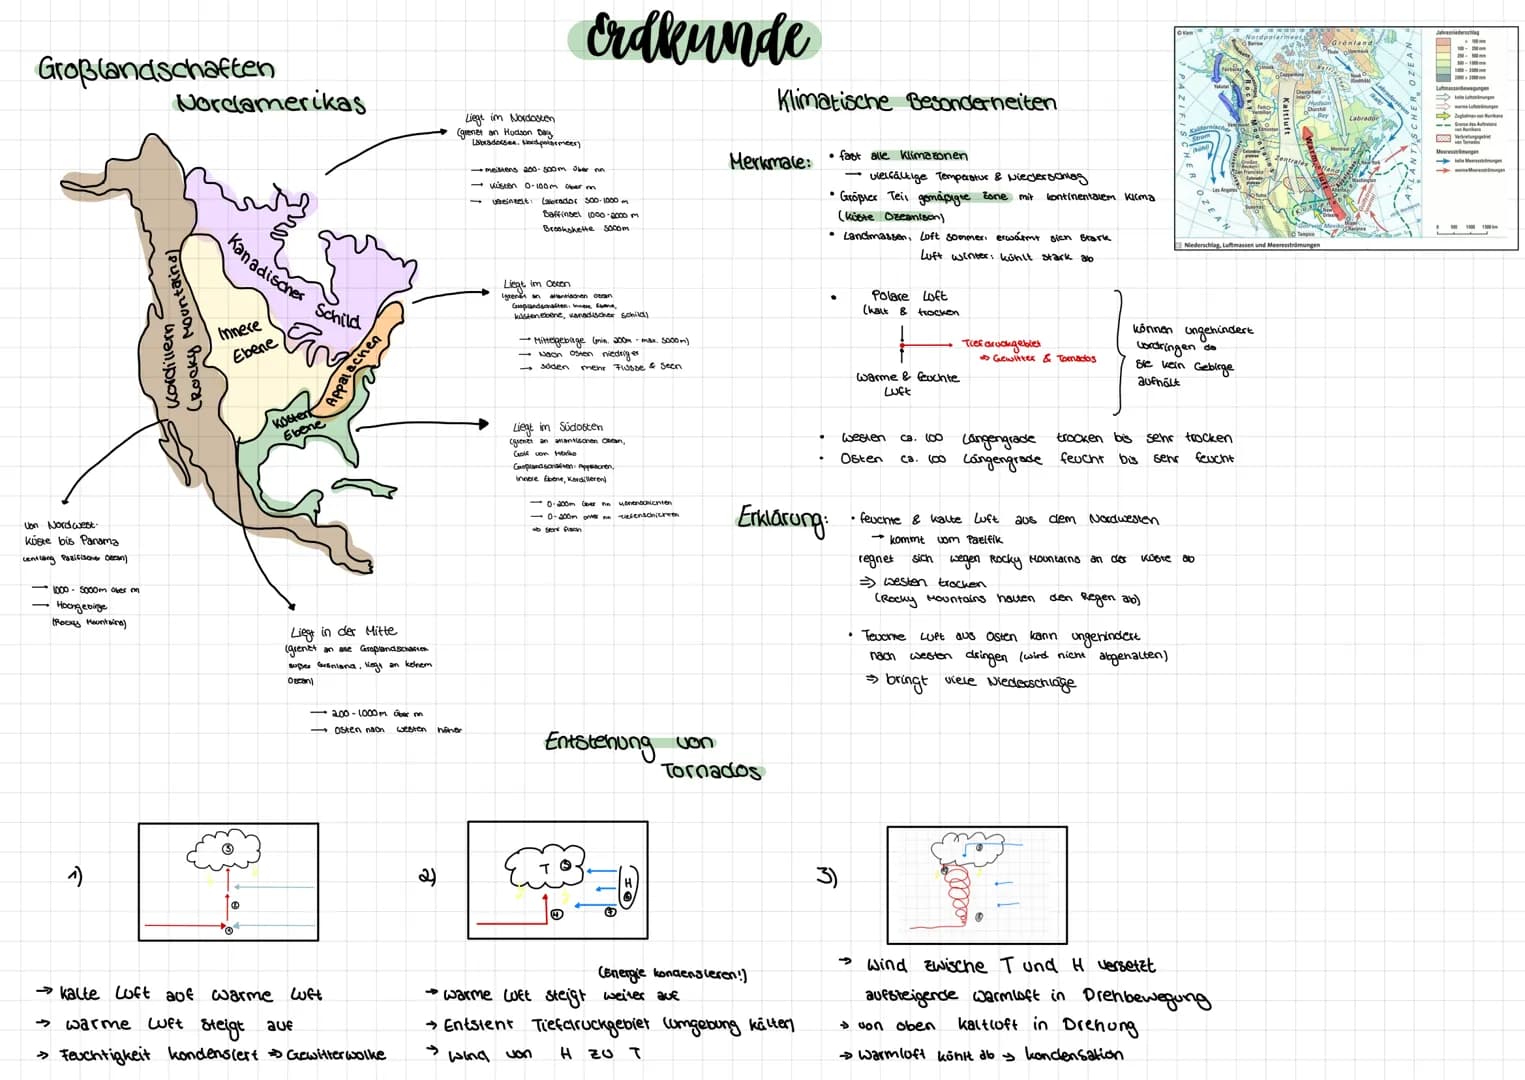 Erdkunde
Großlandschaften
Nordamerikas
Kordillern
(Rocky Mountains)
Kanadischer
Schild
Innere
Ebene
Appalachen
Küsten
Ebene
Liegt im Nordosten
(grenzt an Hudson Bay,
Labradorsee, Nordpolarmeer)
→ meistens 200-500m über nn
→ Küsten 0-100m über nn
→ vereinzelt: Labrador 500-1000 m
Baffinsel 1000-2000 m
Brookskette 3000m
Liegt im Osten
(grenzt an atlantischen Ozean
Großlandschaften: Innere Ebene,
Küstenebene, kanadischer Schild)
→ Mittelgebirge (min. 200m - max. 5000m)
→ Nach Osten niedriger
→ Süden mehr Flüsse & Seen
Liegt im Südosten
(grenzt an atlantischen Ozean,
Golf von Mexiko
Großlandschaften: Appalachen,
Innere Ebene, Kordilleren)
→ 0-200m über nn
→ 0-200m unter nn
⇒ sehr flach
Von Nordwest-
Küste bis Panama
(entlang Pazifischer Ozean)
→ 1000 - 5000m über nn
→ Hochgebirge
(Rocky Mountains)
Liegt in der Mitte
(grenzt an alle Großlandschaften
außer Grönland, liegt an keinem
Ozean)
→ 200-1000m über nn
→ Osten nach Westen höher
Klimatische Besonderheiten
Merkmale:
• fast alle Klimazonen
→ vielfältige Temperatur & Niederschlag
• Größter Teil gemäßigte Zone mit kontinentalem Klima
(Küste Ozeanisch)
• Landmassen, Luft Sommer: erwärmt sich stark
Luft Winter: kühlt stark ab
• Polare Luft
(kalt & trocken
Tiefdruckgebiet
⇒ Gewitter & Tornados
Warme & feuchte
Luft
können ungehindert
vordringen da
sie kein Gebirge
aufhält
• Westen ca. 100 Längengrade trocken bis sehr trocken
• Osten ca. 100 Längengrade feucht bis sehr feucht
Erklärung:
• feuchte & kalte Luft aus dem Nordwesten
→ kommt vom Pazifik
regnet sich wegen Rocky Mountains an der Küste ab
⇒ Westen trocken
(Rocky Mountains halten den Regen ab)
• Feuchte Luft aus Osten kann ungehindert
nach Westen dringen (wird nicht abgehalten)
⇒ bringt viele Niederschläge
© Klett
Jahresniederschlag
Luftmassenbewegungen
kalte Luftströmungen
warme Luftströmungen
Zugbahnen von Hurrikans
Verbreitungsgebiet
von Tornados
Meeresströmungen
kalte Meeresströmungen
warme Meeresströmungen
Nordpolarmeer
Grönland
PAZIFISCHER OZEAN
ATLANTISCHER OZEAN
Kaltluft
Warmluft
Rocky Mountains
Hudson
Bay
Labrador
Kalifornischer
Strom
(kühl)
Los Angeles
0 500 1000 1500 km
Niederschlag, Luftmassen und Meeresströmungen
Entstehung von
Tornados
1)
2)
T
H
3)
→ kalte Luft auf warme Luft
→ warme Luft steigt auf
→ Feuchtigkeit kondensiert ⇒ Gewitterwolke
(Energie kondensieren!)
→ warme Luft steigt weiter auf
→ Entsteht Tiefdruckgebiet (Umgebung kälter)
→ Wind von H zu T
→ Wind zwische T und H versetzt
aufsteigende Warmluft in Drehbewegung
→ von oben Kaltluft in Drehung
→ Warmluft kühlt ab → kondensation